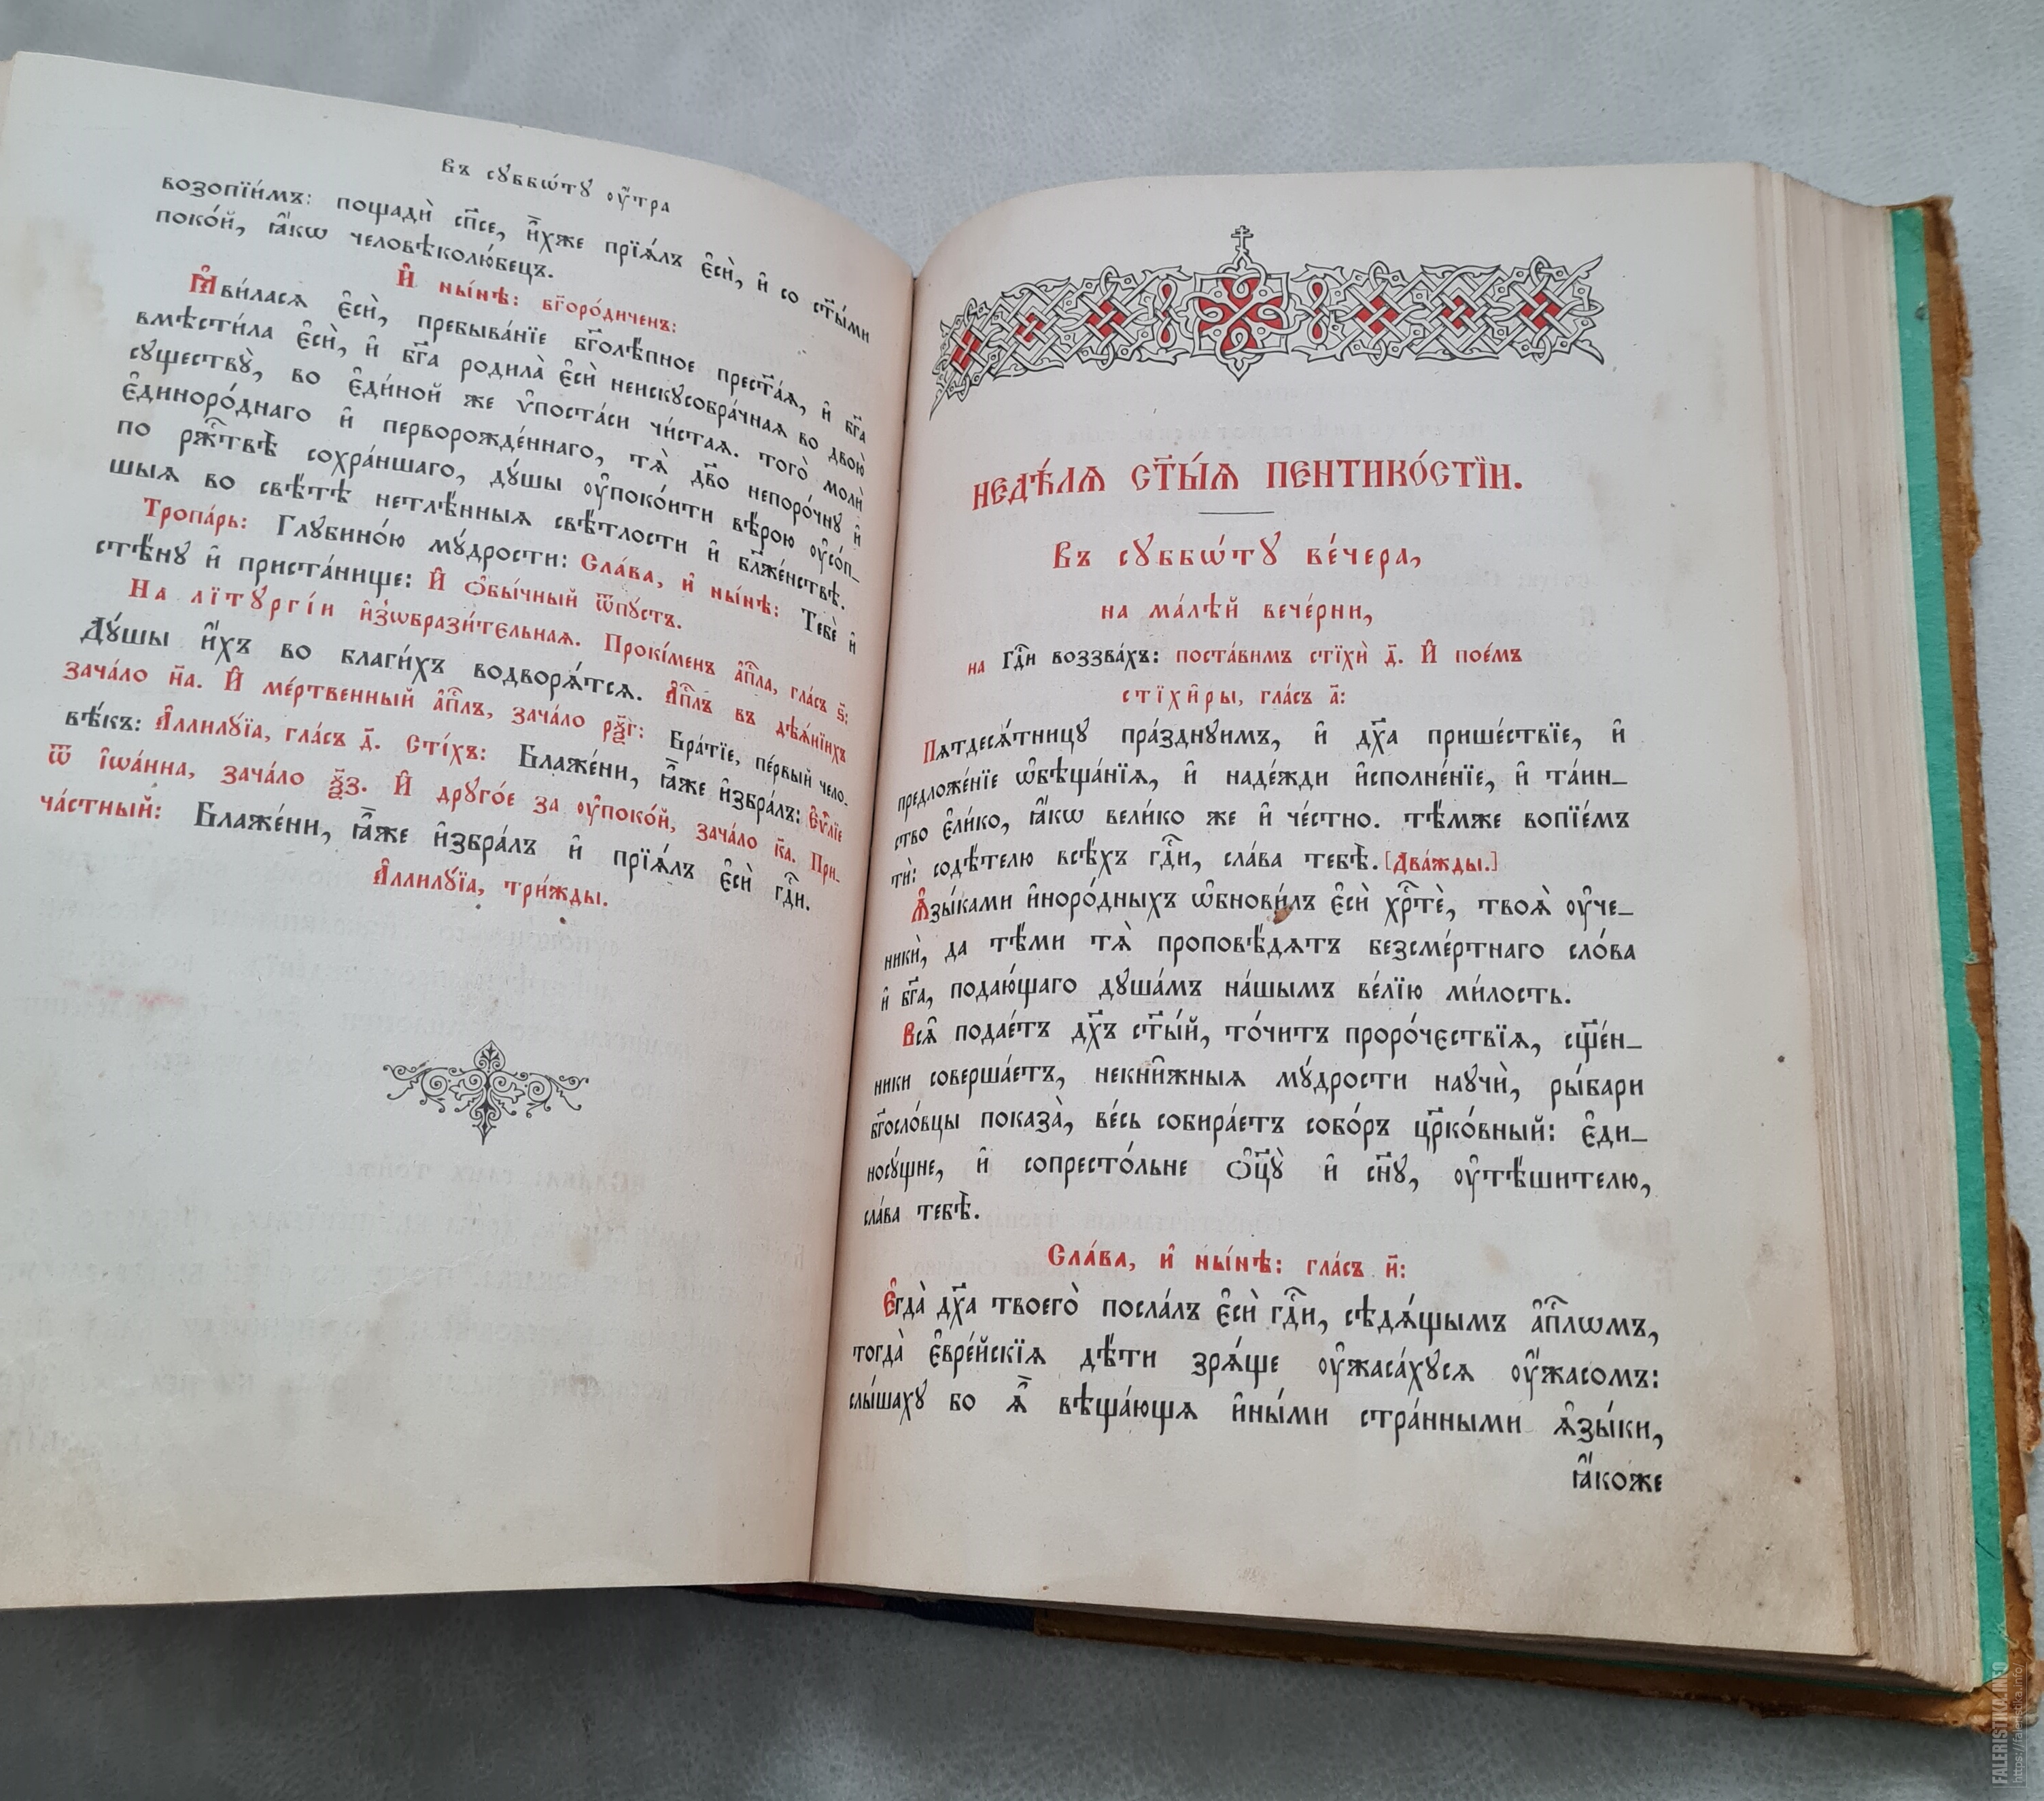 Въ сꙋббѡ́тꙋ оу҆́тра
возопїи́мъ: пощадѝ сп҃се, и҆̀хже прїѧ́лъ є҆сѝ, и҆ со ст҃ы́ми
поко́й, ꙗ҆́кѡ человѣколю́бецъ.
И҆ ны́нѣ: бг҃оро́диченъ:
Ꙗ҆ви́ласѧ є҆сѝ, пребыва́нїе бг҃олѣ́пное прест҃а́ѧ, и҆ бг҃а
вмѣсти́ла є҆сѝ, и҆ бг҃а родила̀ є҆сѝ неискꙋсобра́чнаѧ во двою̀
сꙋществꙋ̀, во є҆ди́ной же ѵ҆поста́си чи́стаѧ. того̀ молѝ
є҆диноро́днаго и҆ перворожде́ннаго, тѧ̀ дв҃ѡ непоро́чнꙋ и҆
по ржⷭ҇твѣ̀ сохра́ншаго, дꙋ́шы оу҆поко́ити вѣ́рою оу҆со́п-
шыѧ во свѣ́тѣ нетлѣ́нныѧ свѣ́тлости и҆ бл҃же́нствѣ.
Тропа́рь: Глꙋбино́ю мꙋ́дрости: Сла́ва, и҆ ны́нѣ: Тебѐ и҆
стѣ́нꙋ и҆ приста́нище: И҆ ѻ҆бы́чный ѿпꙋ́стъ.
На лїтꙋргі́и и҆з̾ѡбрази́тельнаѧ. Прокі́менъ а҆пⷭ҇ла, гла́съ ѕ҃:
Дꙋ́шы и҆́хъ во благи́хъ водворѧ́тсѧ. А҆пⷭ҇лъ въ дѣѧ́нїихъ
зача́ло н҃а. И҆ ме́ртвенный а҆пⷭ҇лъ, зача́ло рѯ҃г: Бра́тїе, пе́рвый чело-
вѣ́къ: А҆ллилꙋ́їа, гла́съ д҃. Сті́хъ: Блаже́ни, ꙗ҆̀же и҆збра́лъ: Е҆ѵⷢ҇лїе
ѿ і҆ѡа́нна, зача́ло ѯ҃з. И҆ дрꙋго́е за оу҆поко́й, зача́ло к҃а. При-
ча́стный: Блаже́ни, ꙗ҆̀же и҆збра́лъ и҆ прїѧ́лъ є҆сѝ гдⷭ҇и.
А҆ллилꙋ́їа, три́жды.
НЕДѢ́ЛѦ СТ҃Ы́Ѧ ПЕНТИКО́СТЇИ.
Въ сꙋббѡ́тꙋ ве́чера,
на ма́лѣй вече́рни,
на Гдⷭ҇и воззва́хъ: поста́вимъ стїхѝ д҃. И҆ пое́мъ
стїхи̑ры, гла́съ а҃:
Пѧтдесѧ́тницꙋ пра́зднꙋимъ, и҆ дх҃а прише́ствїе, и҆
предложе́нїе ѡ҆бѣща́нїѧ, и҆ наде́жди и҆сполне́нїе, и҆ та́ин-
ство є҆ли́ко, ꙗ҆́кѡ вели́ко же и҆ че́стно. тѣ́мже вопїе́мъ
тѝ: содѣ́телю всѣ́хъ гдⷭ҇и, сла́ва тебѣ̀. [Два́жды.]
Ѧ҆зы́ками и҆норо́дныхъ ѡ҆бнови́лъ є҆сѝ хрⷭ҇тѐ, твоѧ̀ оу҆че-
никѝ, да тѣ́ми тѧ̀ проповѣ́дѧтъ безсме́ртнаго сло́ва
и҆ бг҃а, подаю́щаго дꙋша́мъ на́шымъ ве́лїю ми́лость.
Всѧ̑ подае́тъ дх҃ъ ст҃ы́й, то́читъ проро́чєствїѧ, сщ҃е́н-
ники соверша́етъ, некни̑жныѧ мꙋ́дрости наꙋчѝ, ры́бари
бг҃осло́вцы показа̀, ве́сь собира́етъ собо́ръ цр҃ко́вный: є҆ди-
носꙋ́щне, и҆ сопресто́льне ѻ҆ц҃ꙋ̀ и҆ сн҃ꙋ, оу҆тѣ́шителю,
сла́ва тебѣ̀.
Сла́ва, и҆ ны́нѣ: гла́съ и҃:
Е҆гда̀ дх҃а твоего̀ посла́лъ є҆сѝ гдⷭ҇и, сѣдѧ́щымъ а҆пⷭ҇лѡмъ,
тогда̀ є҆вре́йскїѧ дѣ́ти зрѧ́ще оу҆жаса́хꙋсѧ оу҆́жасомъ:
слы́шахꙋ бо ѧ҆̀ вѣща́ющѧ и҆ны́ми стра́нными ѧ҆зы́ки,
ꙗ҆́коже
FALERISTIKA.INFO
https://faleristika.info/